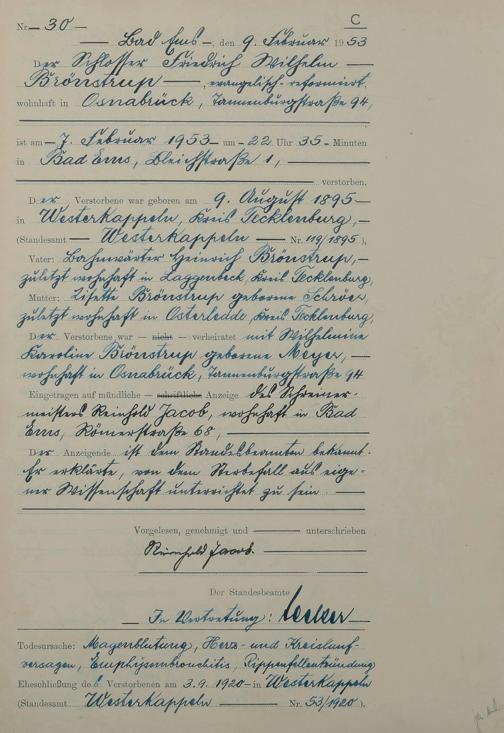 C
Nr. 30
Bad Ems, den 9. Februar 1953
Der Schlosser Friedrich Wilhelm
Brönstrup, evangelisch-reformiert,
wohnhaft in Osnabrück, Tannenburgstraße 94,
ist am 7. Februar 1953 um 22 Uhr 35 Minuten
in Bad Ems, Bleichstraße 1,
verstorben.
Der Verstorbene war geboren am 9. August 1895
in Westerkappeln, Kreis Tecklenburg,
(Standesamt Westerkappeln Nr. 119/1895).
Vater: Bahnwärter Heinrich Brönstrup,
zuletzt wohnhaft in Laggenbeck, Kreis Tecklenburg,
Mutter: Lisette Brönstrup geborene Schröer,
zuletzt wohnhaft in Osterledde, Kreis Tecklenburg,
Der Verstorbene war — nicht — verheiratet mit Wilhelmine
Karoline Brönstrup geborene Meyer,
wohnhaft in Osnabrück, Tannenburgstraße 94
Eingetragen auf mündliche — schriftliche Anzeige des Schreiner-
meisters Reinhold Jacob, wohnhaft in Bad
Ems, Römerstraße 68,
Der Anzeigende ist dem Standesbeamten bekannt.
Er erklärte, von dem Sterbefall aus eige-
ner Wissenschaft unterrichtet zu sein.
Vorgelesen, genehmigt und unterschrieben
Reinhold Jacob.
Der Standesbeamte
In Vertretung:
Todesursache: Magenblutung, Herz- und Kreislauf-
versagen, Emphysembronchitis, Rippenfellentzündung
Eheschließung des Verstorbenen am 3.9.1920 in Westerkappeln
(Standesamt Westerkappeln Nr. 53/1920).